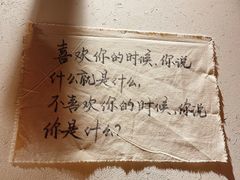 喜欢你的时候,你说
什么就是什么,
不喜欢你的时候,你说
你是什么?